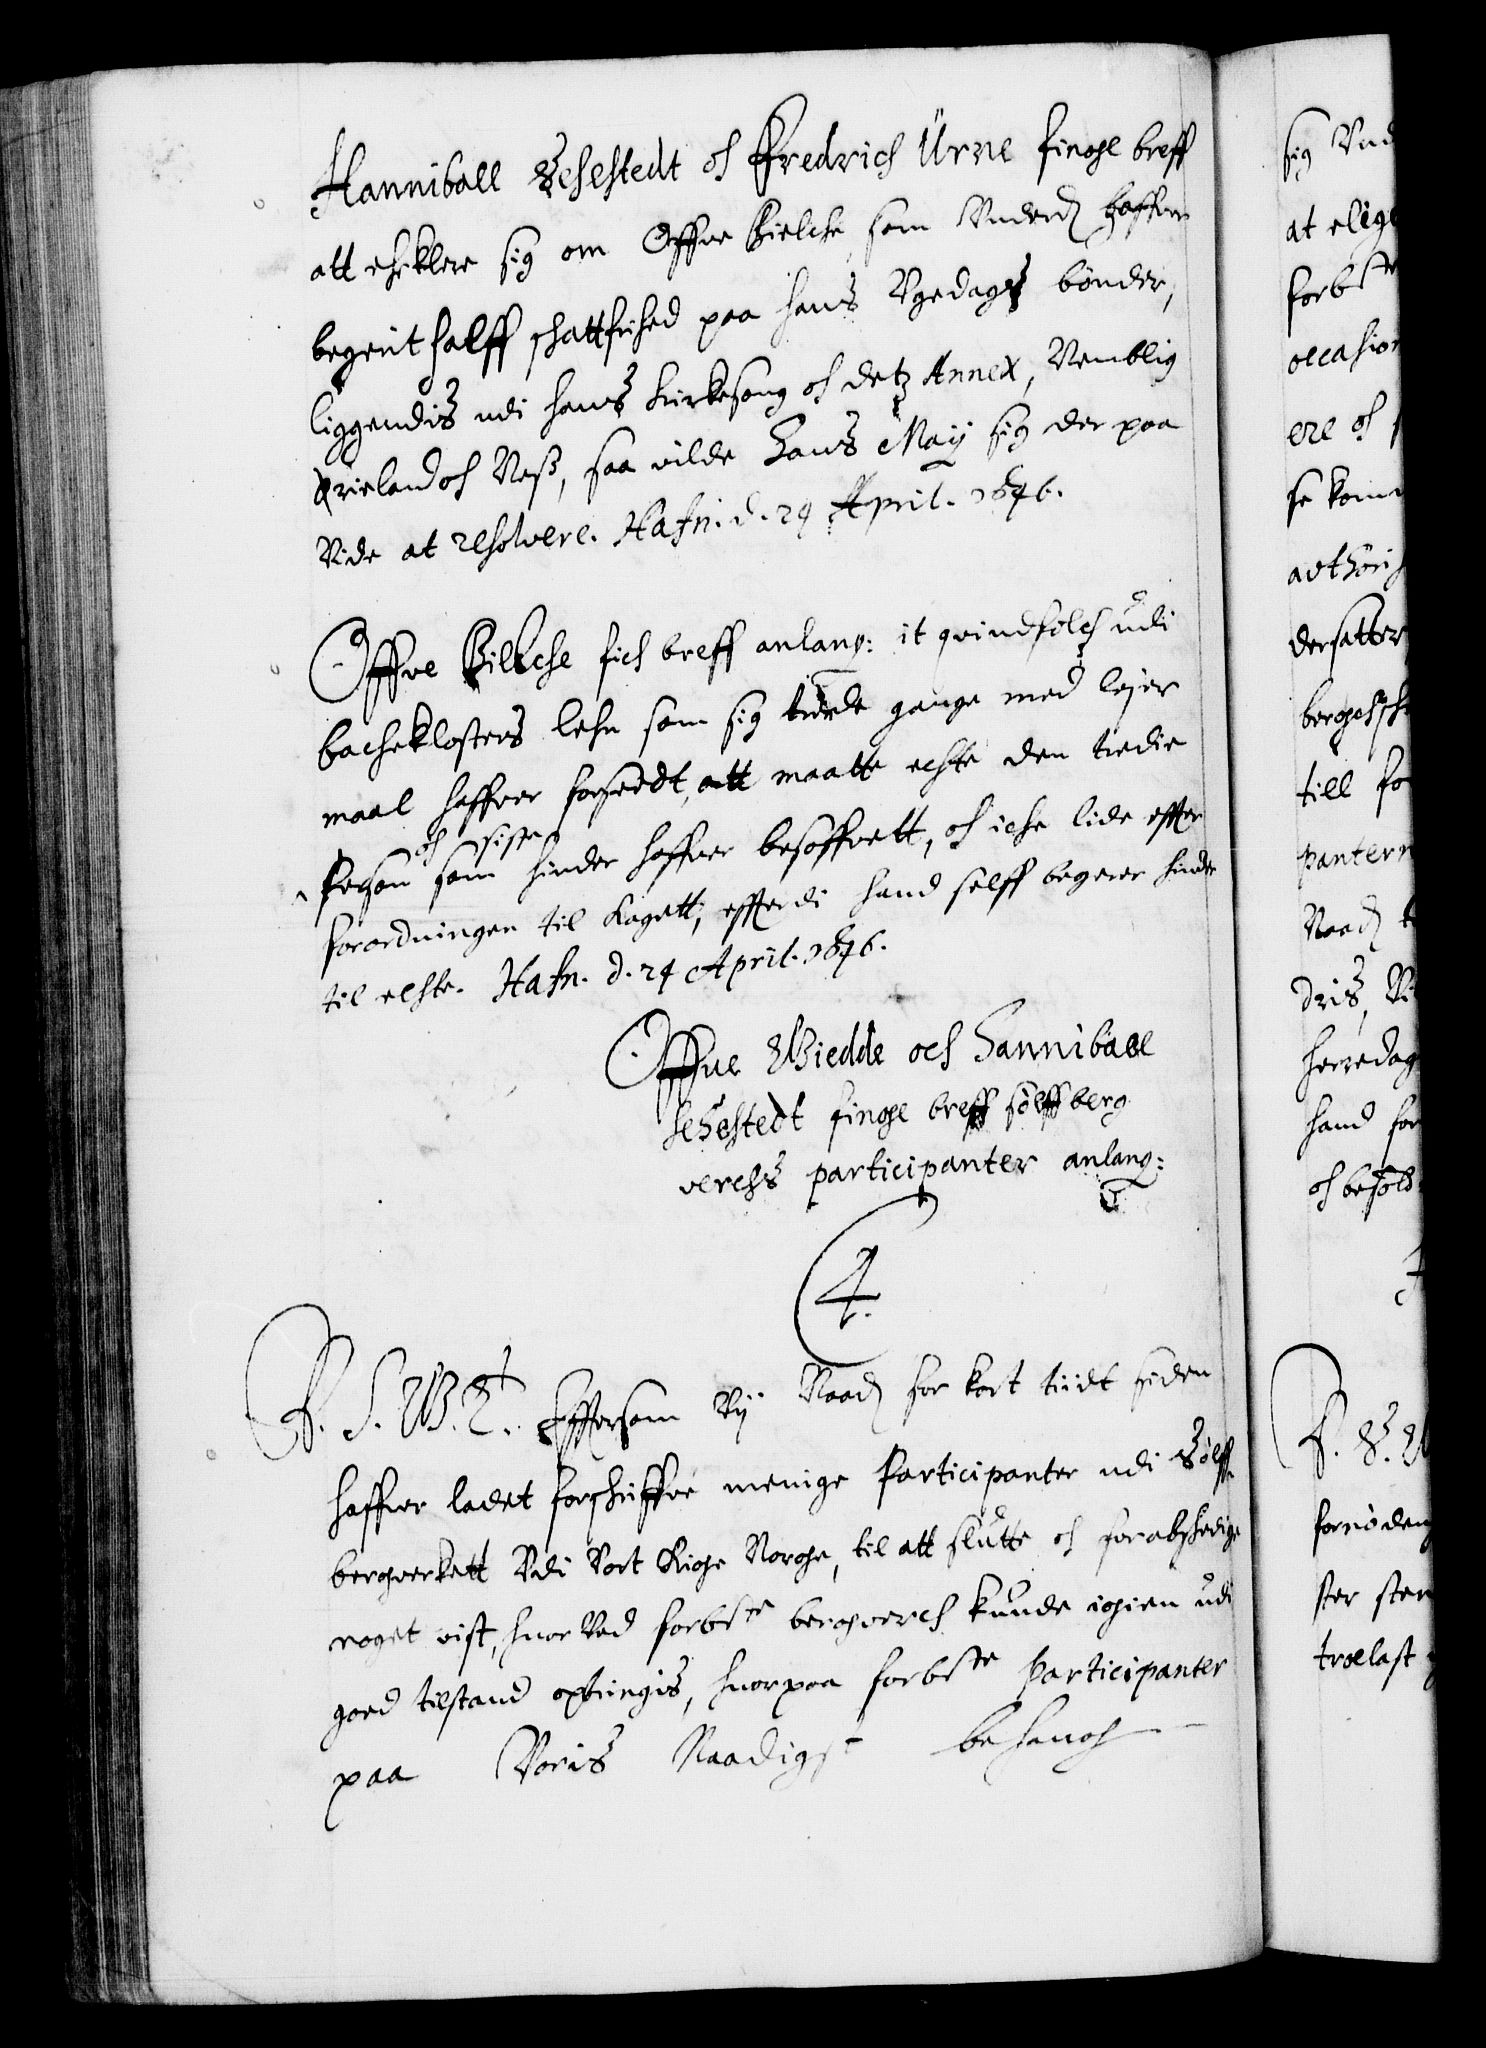 Hanniball Sehestedt oc Fredrich Ürne finge breff
att erklere sig om Offue Bielche som Underd: haffuer
begerit halff schattfrihed paa hans Ugedags bønder,
liggendis udi hans Kirkesong oc detz Annex, Nemblig
Ørieland oc Neß, saa vilde Hans Maij sig der paa
Vide at resolvere. Hafn. d. 24 April. 1646.
Offue Bielche fich breff anlang: it qvindfolch udi
bacheklosters lehn som sig tredie gange med lejer
maal haffuer forseedt, att maatte echte den tredie
oc siste
Person som hinder haffuer besoffvett, oc iche lide effter
forordningen til Kagett, efftterdi hand selff begerer hinde
til echte. Hafn. d. 24 April. 1646.
Offue Giedde och Hanniball
Sehestedt finge breff sølffberg
verchs participanter anlang:
4.
C. 4. W. G. Efftersom Vij Naad: for kort tiidt siden
haffuer ladet forschriffve menige Participanter udi Sølff
bergverkett Udi Vort Rige Norge, til att slutte oc forabschedige
noget vist, huor Ved forbete bergverch kunde igien udi
goed tilstand opbringis, huorpaa forbete Participanter
paa Voris Naadigst behaug
sig Und
at elige
forbte
occasion
ere oc
se kom
authori
dersatter
bergchsch
till for
panter
Naad:
dris, Vi
herredag
hand for
oc besold
fornøden
ster
troelast